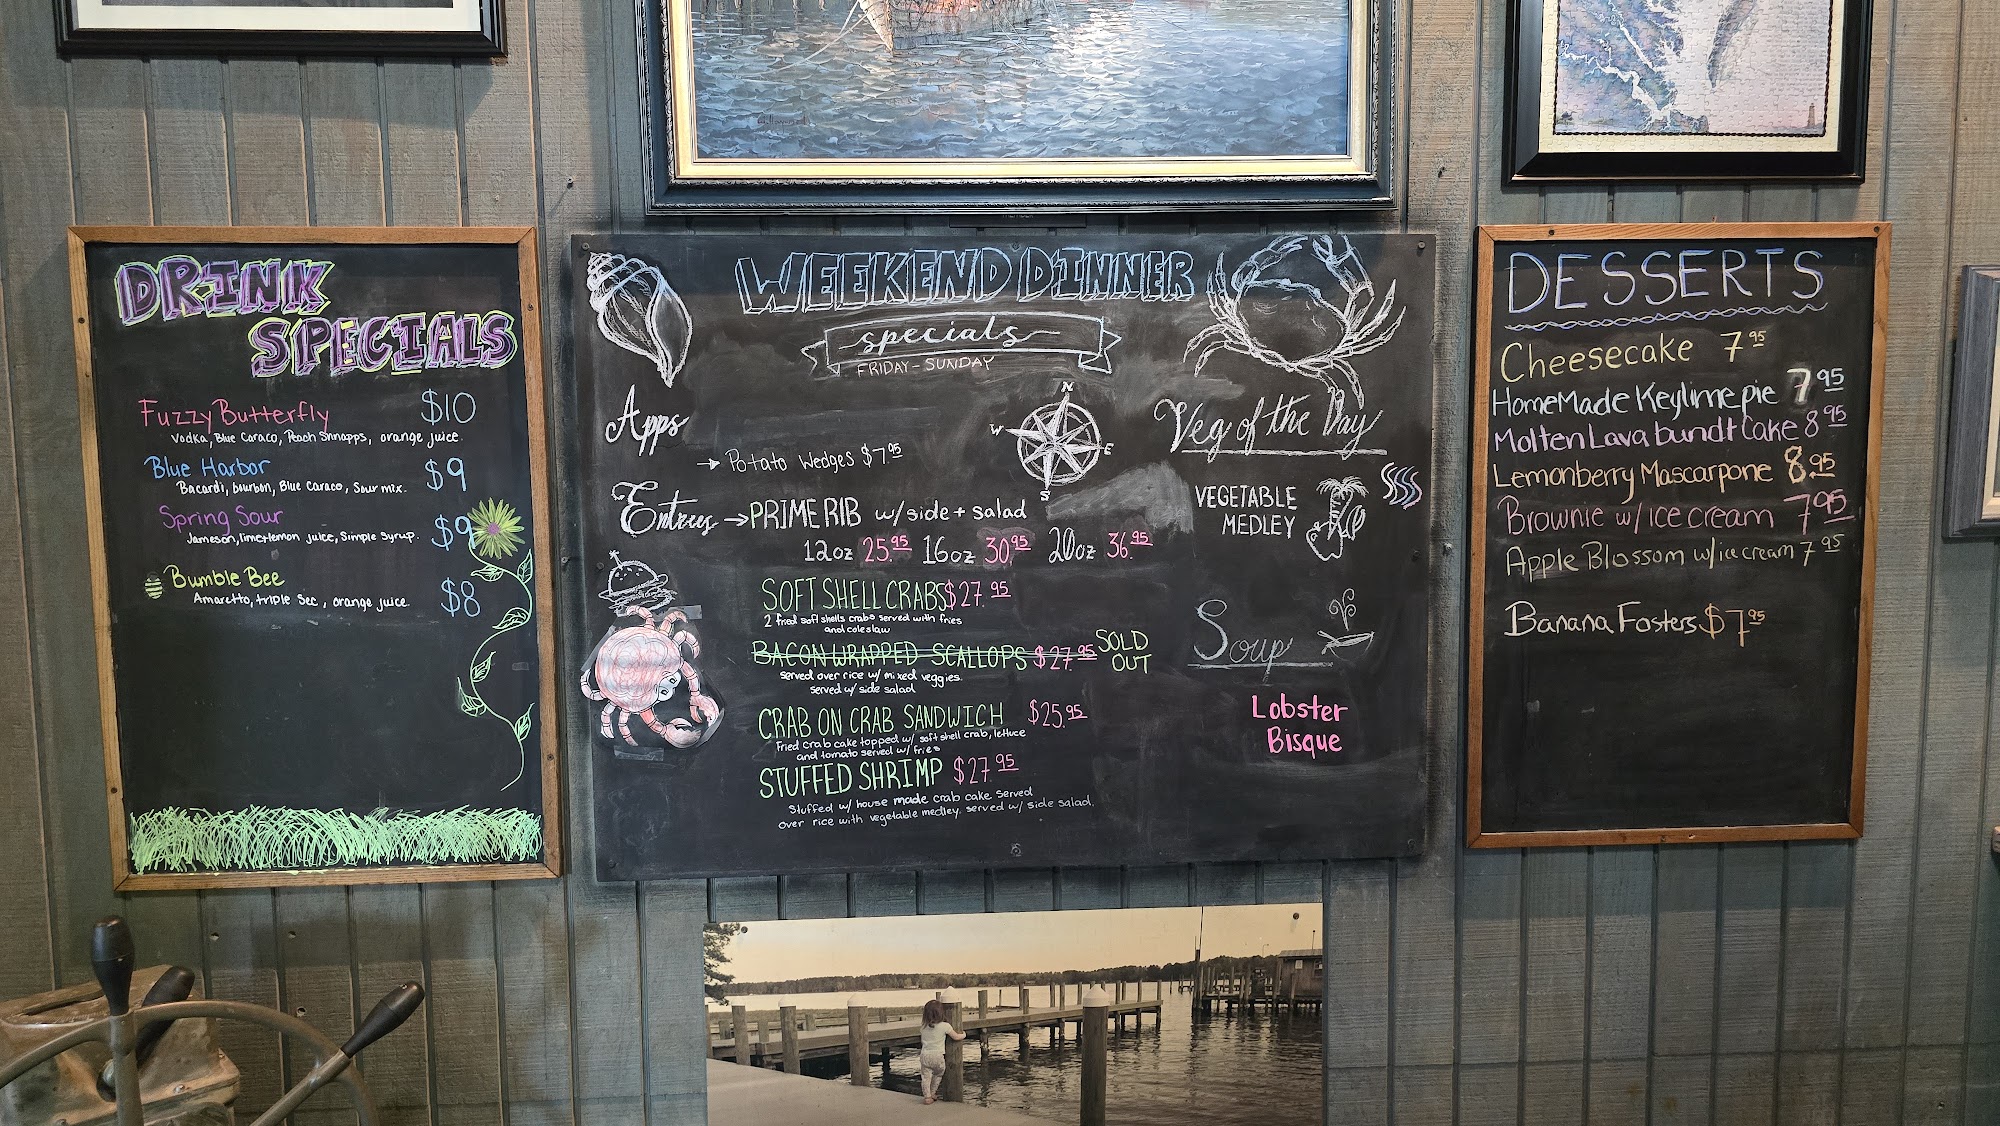 DRINK
SPECIALS
Fuzzy Butterfly $10
Vodka, Blue Caraco, Peach Shnapps, orange juice.
Blue Harbor $9
Bacardi, bourbon, Blue Caraco, Sour mix.
Spring Sour $9
Jameson, lime+lemon juice, Simple Syrup.
Bumble Bee $8
Amaretto, triple Sec, orange juice.
WEEKEND DINNER
specials
FRIDAY-SUNDAY
Apps
Potato Wedges $7.95
N
W E
S
Entrees → PRIME RIB w/side + salad
12oz 25.95 16oz 30.95 20oz 36.95
SOFT SHELL CRABS $27.95
2 fried soft shells crabs served with fries
and coleslaw
BACON WRAPPED SCALLOPS $27.95 SOLD OUT
served over rice w/ mixed veggies.
served w/ side salad
CRAB ON CRAB SANDWICH $25.95
Fried crab cake topped w/ soft shell crab, lettuce
and tomato served w/ fries
STUFFED SHRIMP $27.95
Stuffed w/ house made crab cake served
over rice with vegetable medley. served w/ side salad.
Veg of the Day
VEGETABLE
MEDLEY
Soup
Lobster
Bisque
DESSERTS
Cheesecake 7 95
HomeMade Keylime pie 7 95
Molten Lava bundt Cake 8 95
Lemonberry Mascarpone 8 95
Brownie w/ ice cream 7 95
Apple Blossom w/ice cream 7 95
Banana Fosters $7 95